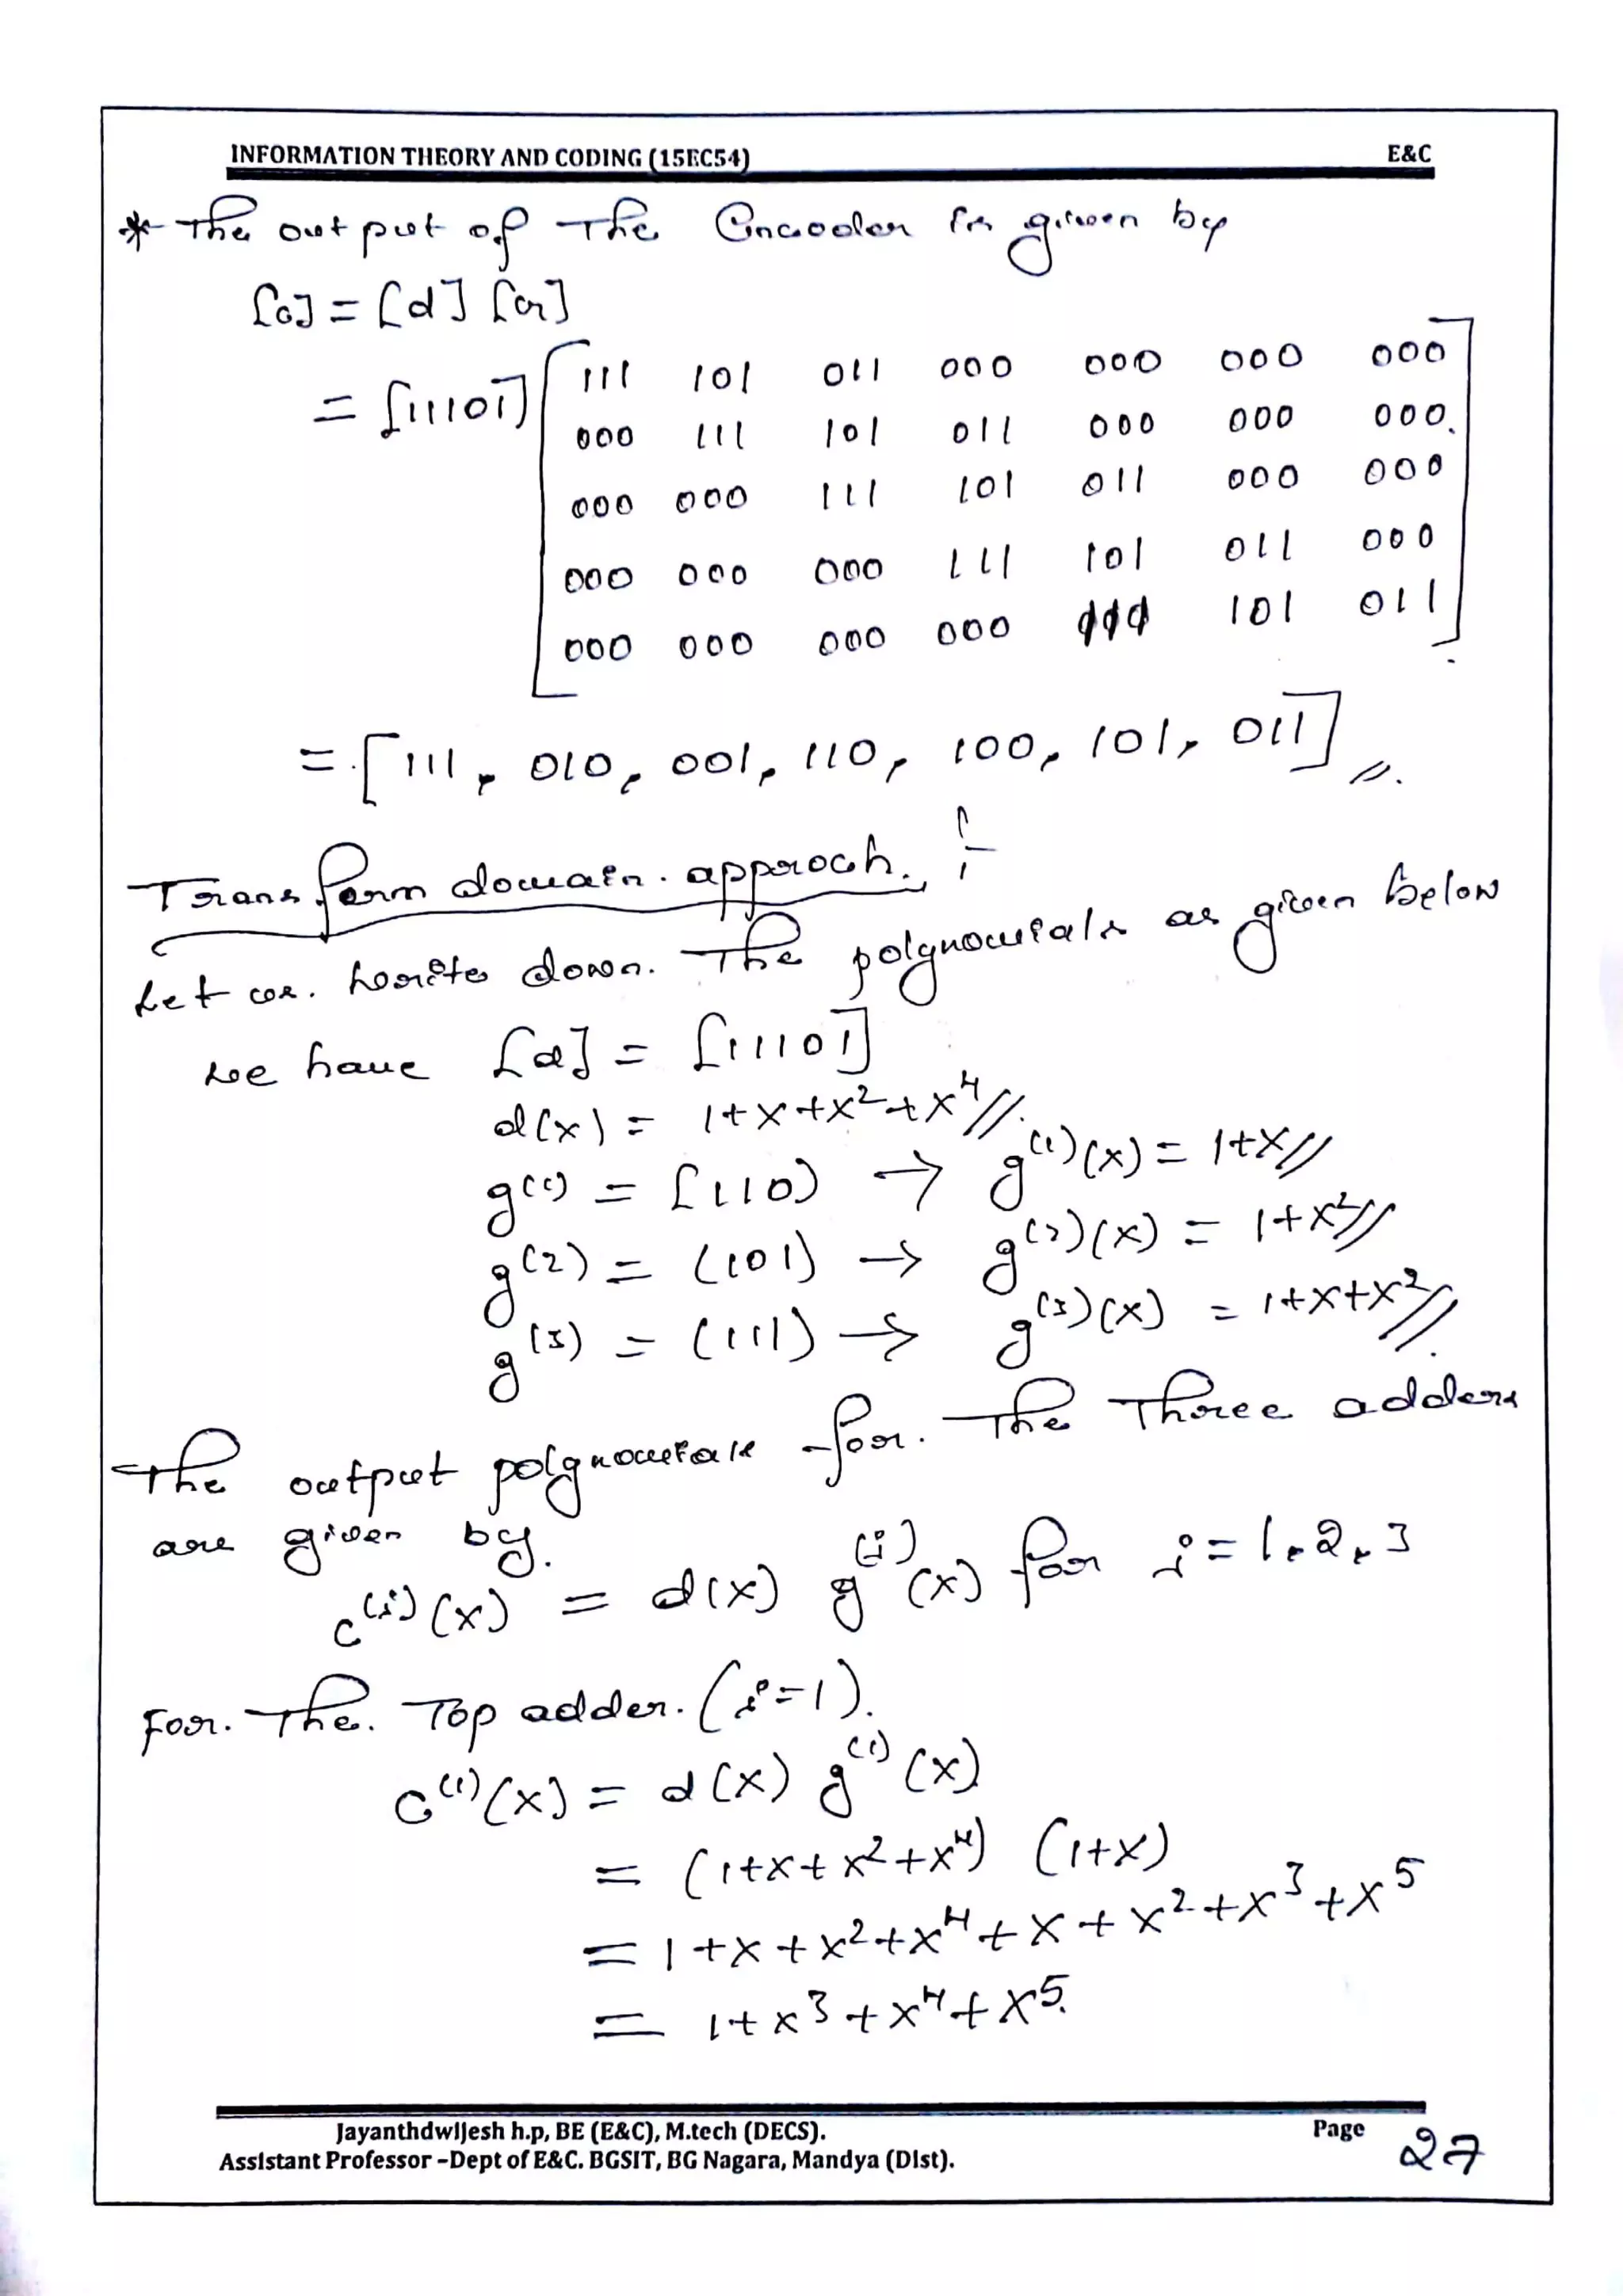 INFORMATION THEORY AND CODING (15EC54) E&C
* The output of the Encoder is given by
[c] = [d] [G]
= [11101] [111 101 011 000 000 000 000
000 111 101 011 000 000 000
000 000 111 101 011 000 000
000 000 000 111 101 011 000
000 000 000 000 111 101 011]
= [111, 010, 001, 110, 100, 101, 011] //.
Transform domain approch. :-
Let us. write down. The polynomials as given below
we have [d] = [11101]
d(x) = 1+x+x²+x⁴//.
g⁽¹⁾ = [110) → g⁽¹⁾(x) = 1+x//
g⁽²⁾ = (101) → g⁽²⁾(x) = 1+x²//
g⁽³⁾ = (111) → g⁽³⁾(x) = 1+x+x²//.
The output polynomials for. The Three adders
are given by.
c⁽ⁱ⁾(x) = d(x) g⁽ⁱ⁾(x) for i = 1, 2, 3
For. The. Top adder. (i=1).
c⁽¹⁾(x) = d(x) g⁽¹⁾(x)
= (1+x+x²+x⁴) (1+x)
= 1+x+x²+x⁴+x+x²+x³+x⁵
= 1+x³+x⁴+x⁵.
Jayanthdwijesh h.p, BE (E&C), M.tech (DECS). Page 27
Assistant Professor –Dept of E&C. BGSIT, BG Nagara, Mandya (Dist).